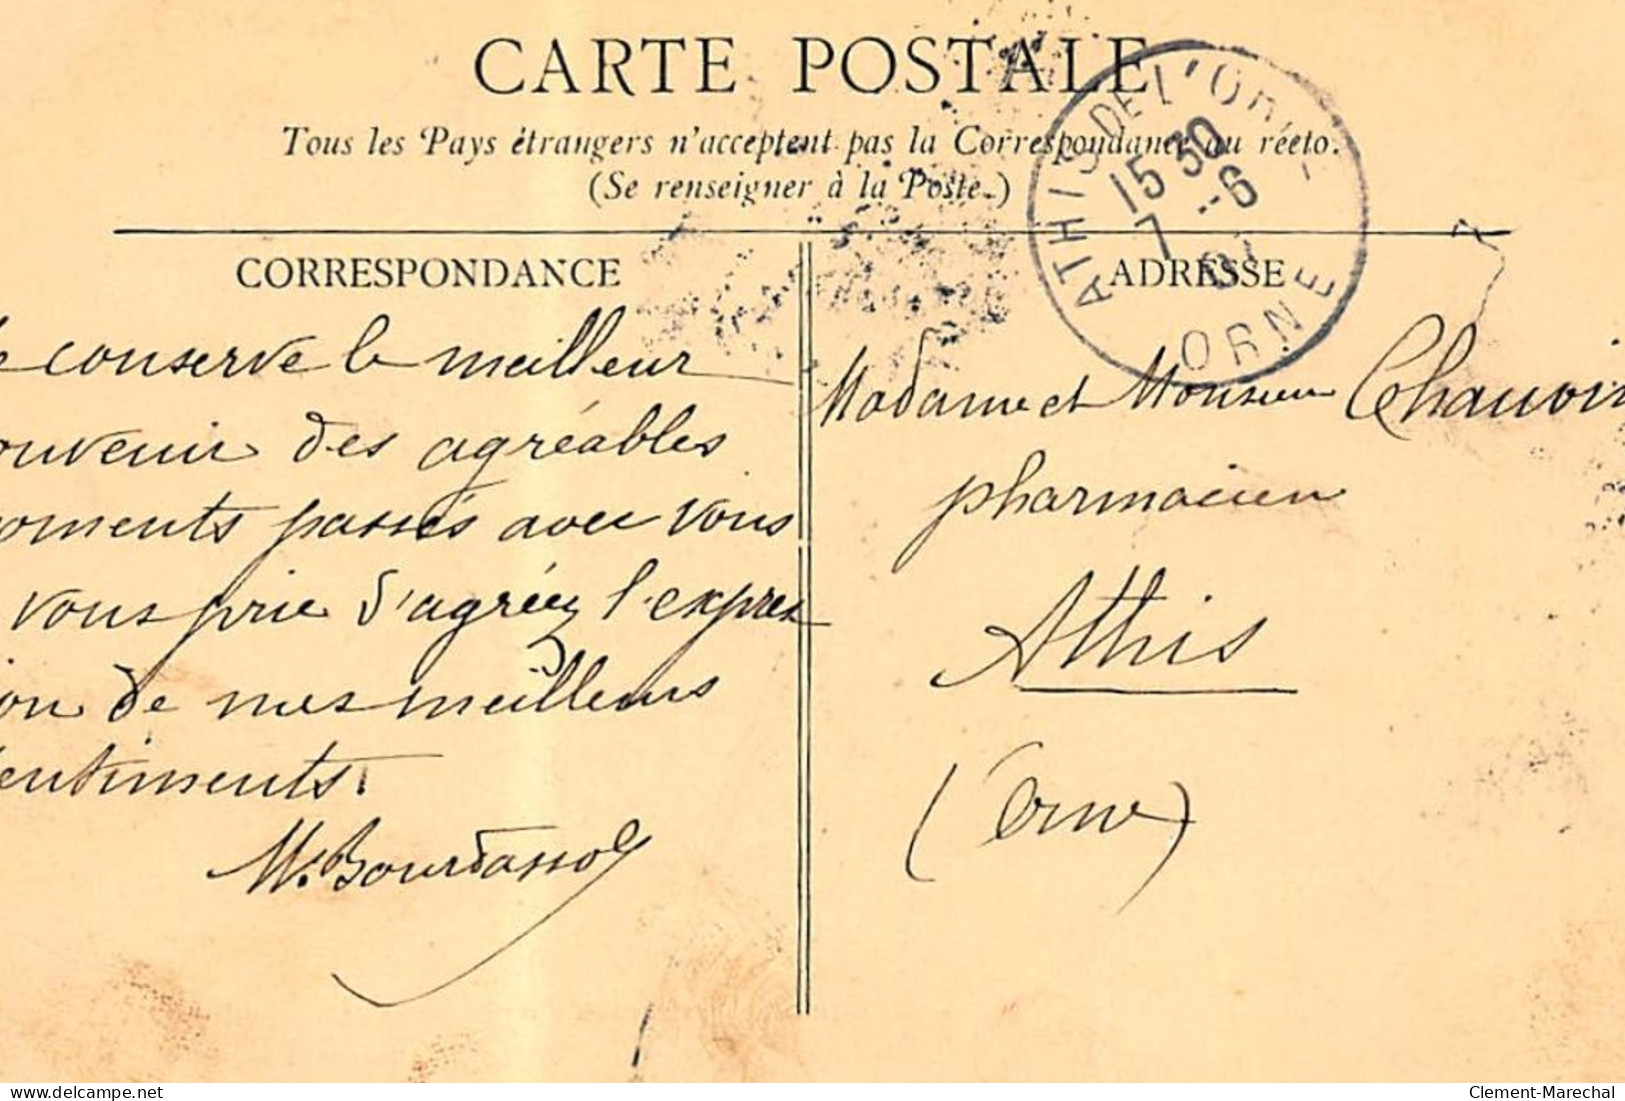 CARTE POSTALE
Tous les Pays étrangers n'acceptent pas la Correspondance au réeto.
(Se renseigner à la Poste.)
ATHIS DE L'ORNE
15 30
7 -6
07
ORNE
CORRESPONDANCE
e conserve le meilleur
ouvenir des agréables
oments passés avec vous
vous prie d'agréez l'expres
ion de mes meilleurs
entiments.
M. Bourdassol
ADRESSE
Madame et Monsieur Chauvin
pharmacien
Athis
(Orne)
delcampe.net
Clement-Marechal